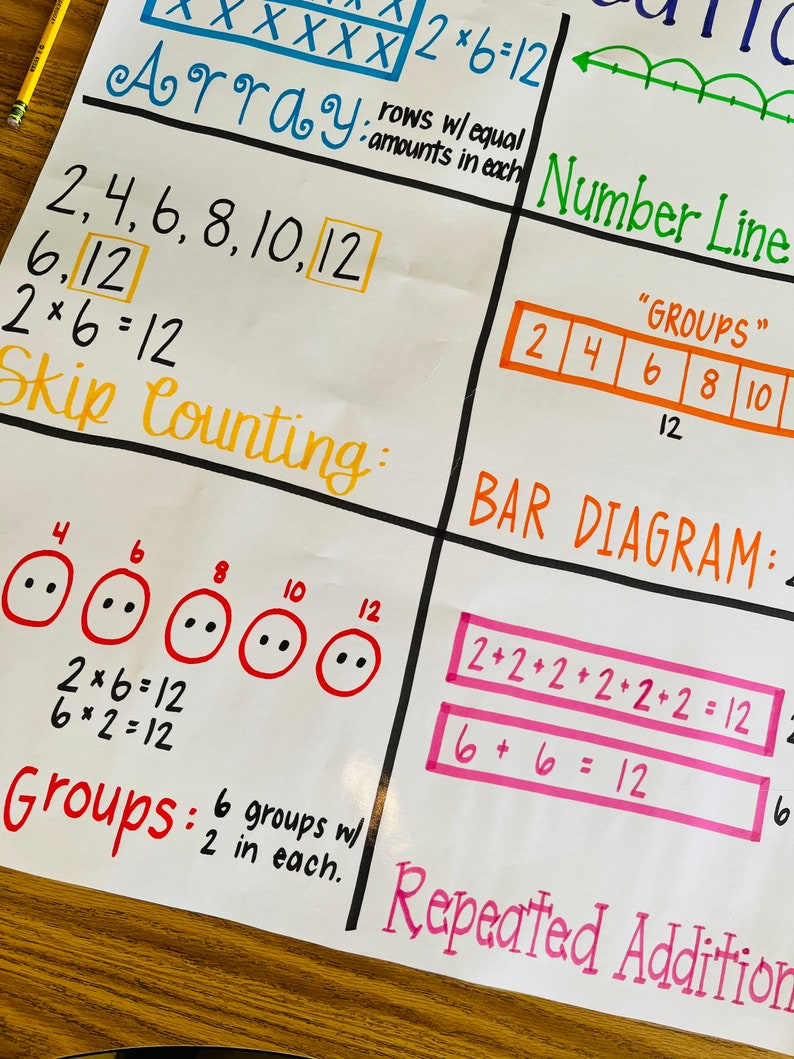 X X X
X X X X X X
2 × 6 = 12
Array: rows w/ equal
amounts in each
Number Line
2, 4, 6, 8, 10, 12
6, 12
2 × 6 = 12
Skip Counting:
"GROUPS"
2 4 6 8 10
12
BAR DIAGRAM:
4 6 8 10 12
2 × 6 = 12
6 × 2 = 12
Groups: 6 groups w/
2 in each.
2 + 2 + 2 + 2 + 2 + 2 = 12
6 + 6 = 12
6
Repeated Addition